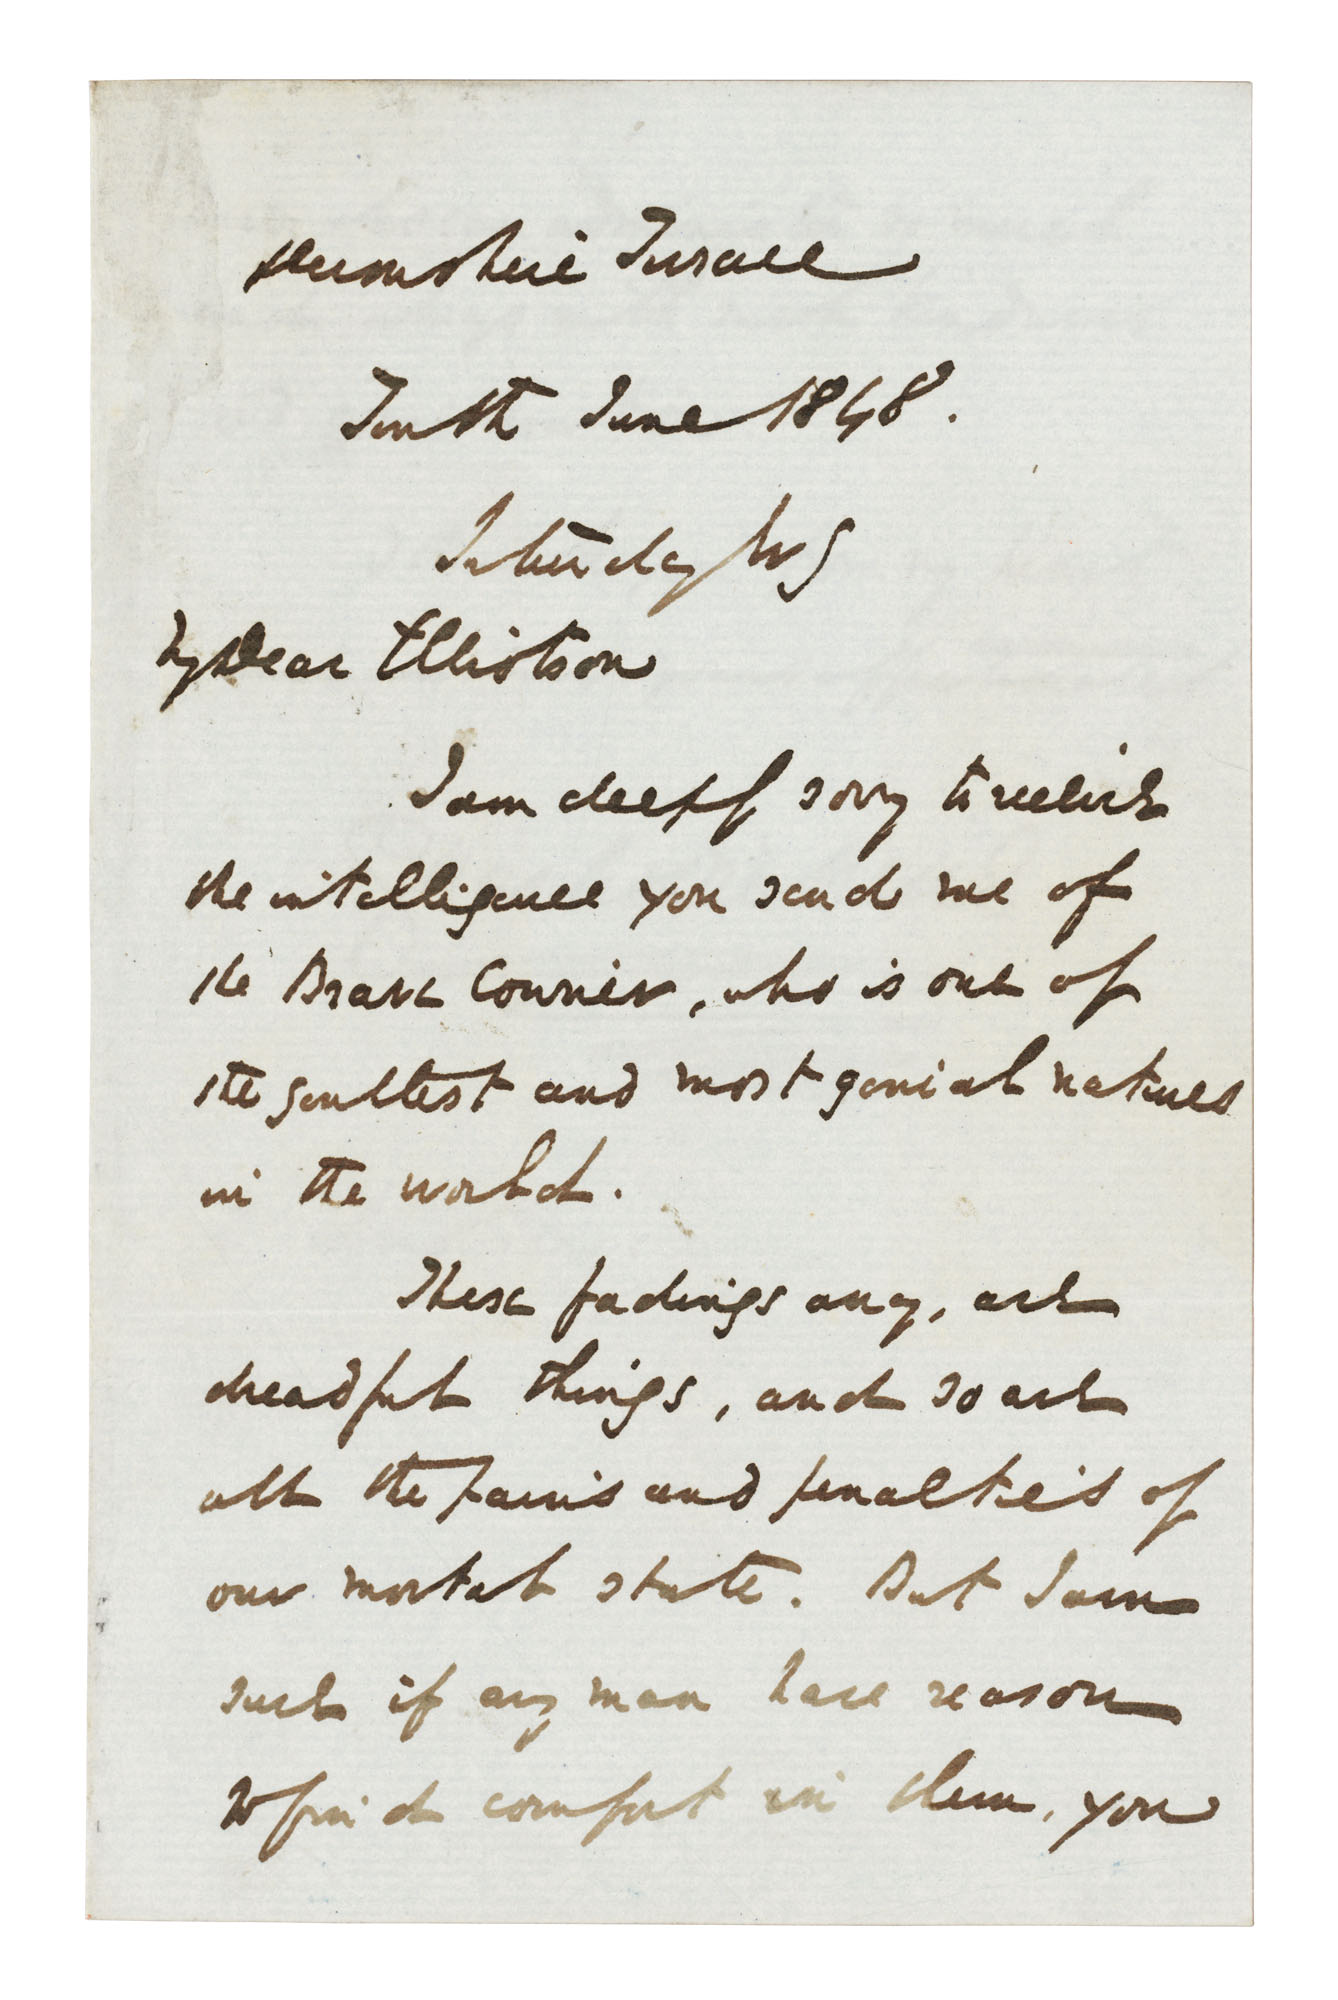 Devonshire Terrace
Tenth June 1848.
Saturday
My Dear Elliotson
I am deeply sorry to receive
the intelligence you send me of
the Brave Courier, who is one of
the gentlest and most genial natures
in the world.
These fadings away, are
dreadful things, and so are
all the pains and penalties of
our mortal state. But I am
sure if any man have reason
to find comfort in them, you